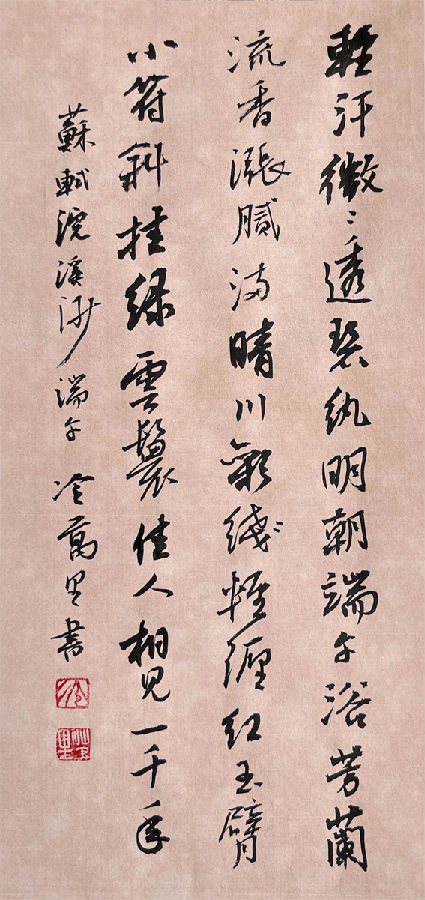 輕汗微〻透碧紈明朝端午浴芳蘭
流香漲膩滿晴川彩线輕纏红玉臂
小符斜挂绿雲鬟佳人相見一千年
蘇軾浣溪沙端午 冷萬里書